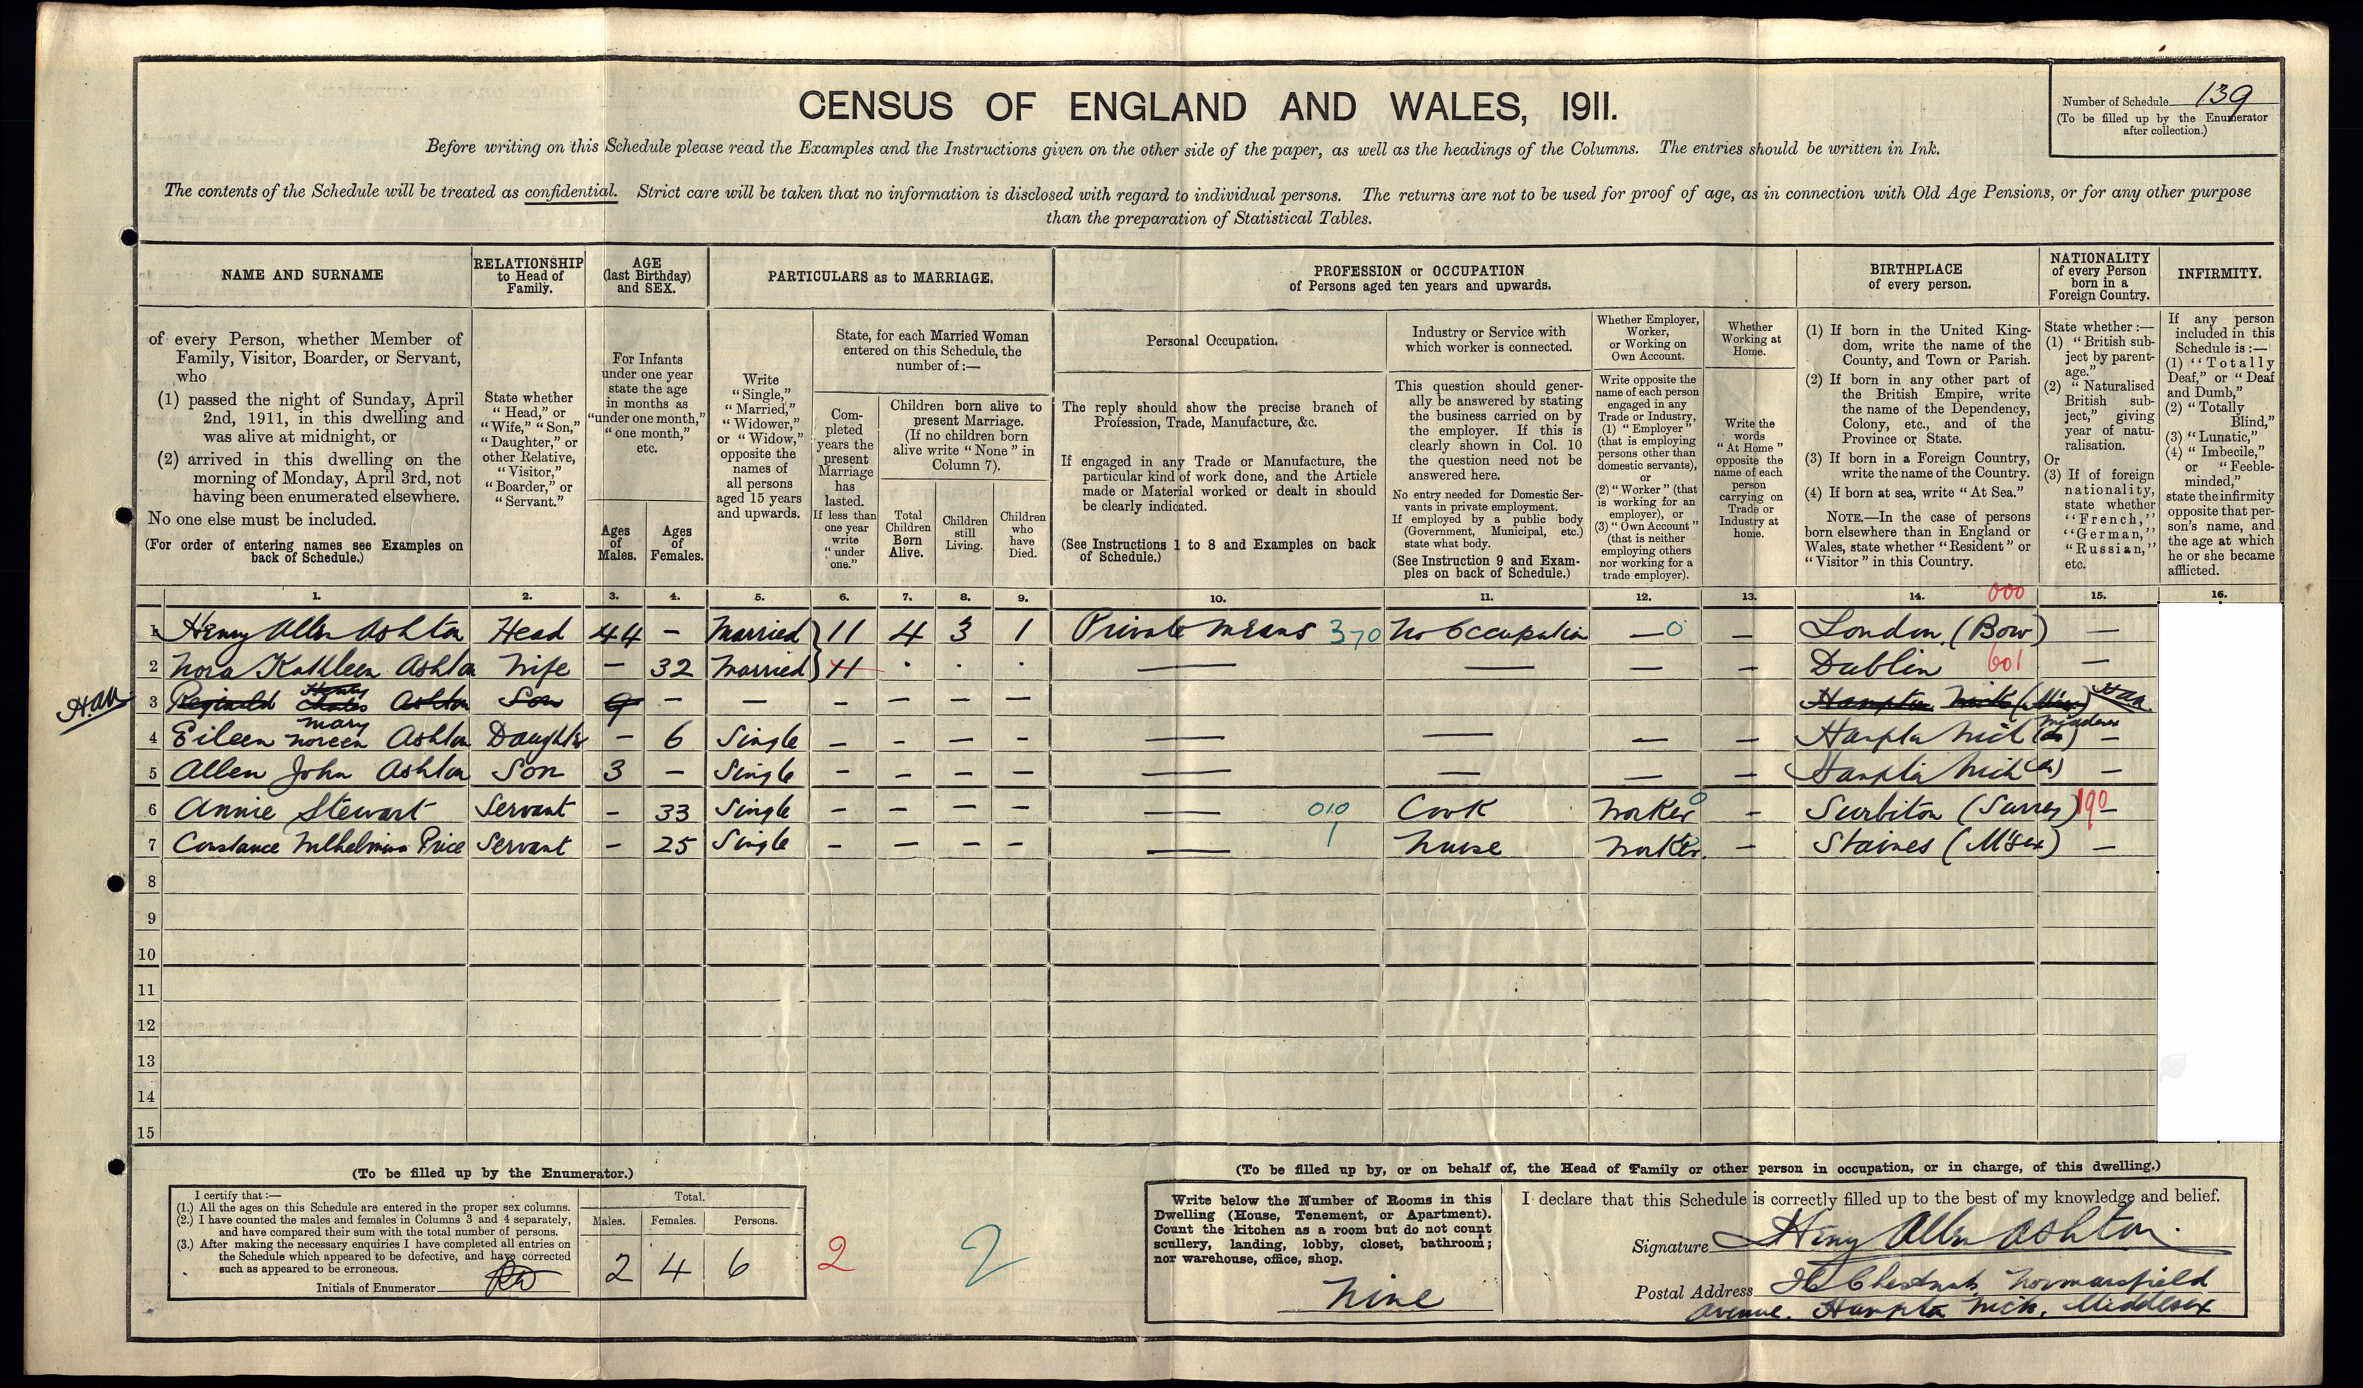 CENSUS OF ENGLAND AND WALES, 1911.
Number of Schedule 139
(To be filled up by the Enumerator
after collection.)
Before writing on this Schedule please read the Examples and the Instructions given on the other side of the paper, as well as the headings of the Columns. The entries should be written in Ink.
The contents of the Schedule will be treated as confidential. Strict care will be taken that no information is disclosed with regard to individual persons. The returns are not to be used for proof of age, as in connection with Old Age Pensions, or for any other purpose
than the preparation of Statistical Tables.
NAME AND SURNAME
of every Person, whether Member of
Family, Visitor, Boarder, or Servant,
who
(1) passed the night of Sunday, April
2nd, 1911, in this dwelling and
was alive at midnight, or
(2) arrived in this dwelling on the
morning of Monday, April 3rd, not
having been enumerated elsewhere.
No one else must be included.
(For order of entering names see Examples on
back of Schedule.)
RELATIONSHIP
to Head of
Family.
State whether
"Head," or
"Wife," "Son,"
"Daughter," or
other Relative,
"Visitor,"
"Boarder," or
"Servant."
AGE
(last Birthday)
and SEX.
For Infants
under one year
state the age
in months as
"under one month,"
"one month,"
etc.
Ages
of
Males.
Ages
of
Females.
PARTICULARS as to MARRIAGE.
Write
"Single,"
"Married,"
"Widower,"
or "Widow,"
opposite the
names of
all persons
aged 15 years
and upwards.
State, for each Married Woman
entered on this Schedule, the
number of:—
Com-
pleted
years the
present
Marriage
has
lasted.
If less than
one year
write
"under
one."
Children born alive to
present Marriage.
(If no children born
alive write "None" in
Column 7).
Total
Children
Born
Alive.
Children
still
Living.
Children
who
have
Died.
PROFESSION or OCCUPATION
of Persons aged ten years and upwards.
Personal Occupation.
The reply should show the precise branch of
Profession, Trade, Manufacture, &c.
If engaged in any Trade or Manufacture, the
particular kind of work done, and the Article
made or Material worked or dealt in should
be clearly indicated.
(See Instructions 1 to 8 and Examples on back
of Schedule.)
Industry or Service with
which worker is connected.
This question should gener-
ally be answered by stating
the business carried on by
the employer. If this is
clearly shown in Col. 10
the question need not be
answered here.
No entry needed for Domestic Ser-
vants in private employment.
If employed by a public body
(Government, Municipal, etc.)
state what body.
(See Instruction 9 and Exam-
ples on back of Schedule.)
Whether Employer,
Worker,
or Working on
Own Account.
Write opposite the
name of each person
engaged in any
Trade or Industry,
(1) "Employer"
(that is employing
persons other than
domestic servants),
or
(2) "Worker" (that
is working for an
employer), or
(3) "Own Account"
(that is neither
employing others
nor working for a
trade employer).
Whether
Working at
Home.
Write the
words
"At Home"
opposite the
name of each
person
carrying on
Trade or
Industry at
home.
BIRTHPLACE
of every person.
(1) If born in the United King-
dom, write the name of the
County, and Town or Parish.
(2) If born in any other part of
the British Empire, write
the name of the Dependency,
Colony, etc., and of the
Province or State.
(3) If born in a Foreign Country,
write the name of the Country.
(4) If born at sea, write "At Sea."
NOTE.—In the case of persons
born elsewhere than in England or
Wales, state whether "Resident" or
"Visitor" in this Country.
NATIONALITY
of every Person
born in a
Foreign Country.
State whether:—
(1) "British sub-
ject by parent-
age."
(2) "Naturalised
British sub-
ject," giving
year of natu-
ralisation.
Or
(3) If of foreign
nationality,
state whether
"French,"
"German,"
"Russian,"
etc.
INFIRMITY.
If any person
included in this
Schedule is:—
(1) "Totally
Deaf," or "Deaf
and Dumb,"
(2) "Totally
Blind,"
(3) "Lunatic,"
(4) "Imbecile,"
or "Feeble-
minded,"
state the infirmity
opposite that per-
son's name, and
the age at which
he or she became
afflicted.
1. 2. 3. 4. 5. 6. 7. 8. 9. 10. 11. 12. 13. 14. 15. 16.
000
1 Henry Allen Ashton Head 44 – Married 11 4 3 1 Private means 370 No Occupation — 0 — London (Bow) —
2 Nora Kathleen Ashton Wife – 32 Married 11 · · · — — — — Dublin 601 —
HAA 3 Reginald Henry Charles Ashton Son 9 – – – – – – Hampton Wick (M'sex) HAA
4 Eileen Mary Noreen Ashton Daughter – 6 Single – – – – — — — — Hampton Wick (Middlesex) –
5 Allen John Ashton Son 3 – Single – – – – — — — — Hampton Wick (do) –
6 Annie Stewart Servant – 33 Single – – – – — 010 Cook Worker 0 – Surbiton (Surrey) 190 –
7 Constance Wilhelmina Price Servant – 25 Single – – – – — 1 Nurse Worker. – Staines (M'sex) –
8
9
10
11
12
13
14
15
(To be filled up by the Enumerator.)
I certify that:—
(1.) All the ages on this Schedule are entered in the proper sex columns.
(2.) I have counted the males and females in Columns 3 and 4 separately,
and have compared their sum with the total number of persons.
(3.) After making the necessary enquiries I have completed all entries on
the Schedule which appeared to be defective, and have corrected
such as appeared to be erroneous.
Initials of Enumerator
Total.
Males. Females. Persons.
2 4 6
2 2
(To be filled up by, or on behalf of, the Head of Family or other person in occupation, or in charge, of this dwelling.)
Write below the Number of Rooms in this
Dwelling (House, Tenement, or Apartment).
Count the kitchen as a room but do not count
scullery, landing, lobby, closet, bathroom;
nor warehouse, office, shop.
Nine
I declare that this Schedule is correctly filled up to the best of my knowledge and belief.
Signature Henry Allen Ashton.
Postal Address The Chestnuts, Normansfield
Avenue. Hampton Wick, Middlesex